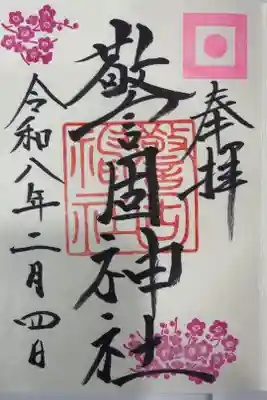 奉拝
警固神社
令和八年二月四日